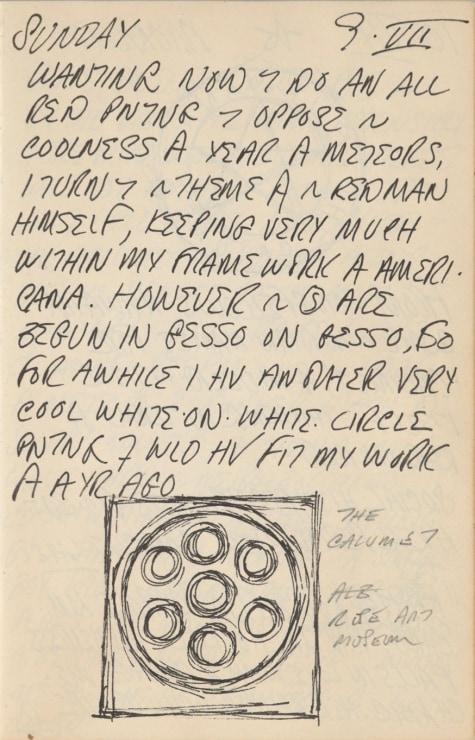 SUNDAY 9.VII
WANTING NOW 7 DO AN ALL
RED PNTNG 7 OPPOSE ~
COOLNESS A YEAR A METEORS,
I TURN 7 ~ THEME A ~ REDMAN
HIMSELF, KEEPING VERY MUCH
WITHIN MY FRAMEWORK A AMERI-
CANA. HOWEVER ~ ⑤ ARE
BEGUN IN GESSO ON GESSO, SO
FOR AWHILE I HV ANOTHER VERY
COOL WHITE·ON·WHITE CIRCLE
PNTNG 7 WLD HV FIT MY WORK
A A YR AGO
THE
CALUMET
ROSE ART
MUSEUM